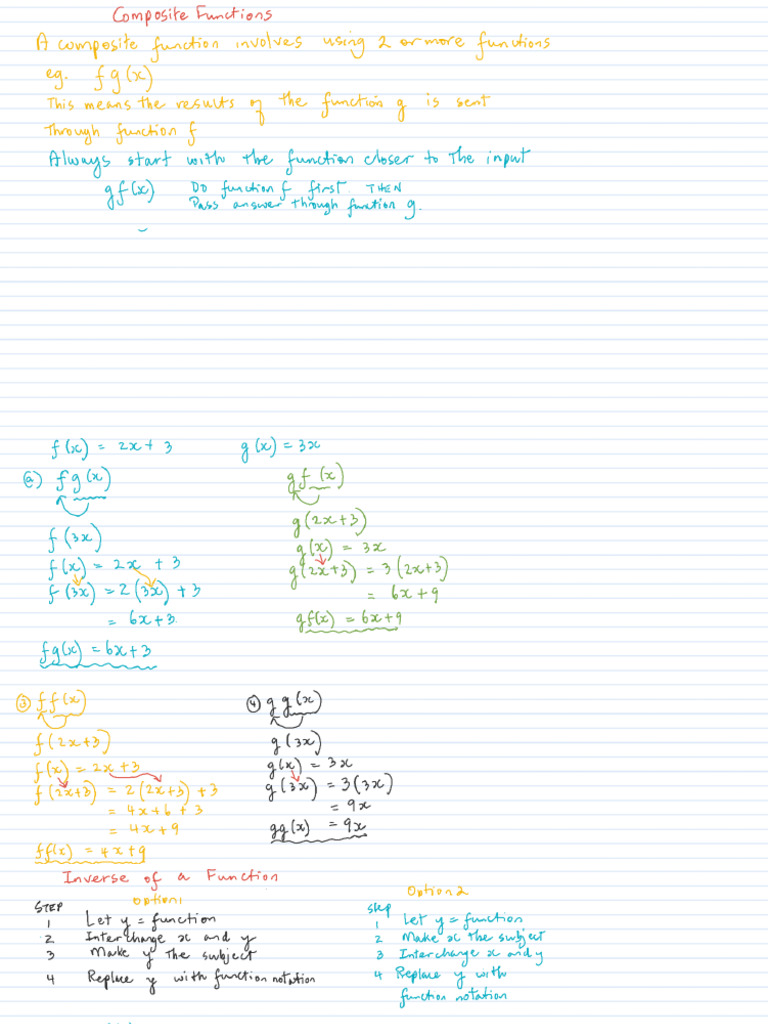 Composite Functions
A composite function involves using 2 or more functions
eg. fg(x)
This means the results of the function g is sent
Through function f
Always start with the function closer to the input
gf(x) Do function f first THEN
Pass answer through function g.
f(x) = 2x + 3
g(x) = 3x
ⓐ) fg(x)
f(3x)
f(x) = 2x + 3
f(3x) = 2(3x) + 3
= 6x+3
fg(x) = 6x+3
gf(x)
g(2x+3)
g(x) = 3x
g(2x+3) = 3(2x+3)
= 6x+9
gf(x) = 6x+9
③ ff(x)
f(2x+3)
f(x) = 2x+3
f(2x+3) = 2(2x+3) + 3
= 4x+6+3
= 4x+9
ff(x) = 4x+9
④ gg(x)
g(3x)
g(x) = 3x
g(3x) = 3(3x)
= 9x
gg(x) = 9x
Inverse of a Function
STEP Option 1
1 Let y = function
2 Interchange x and y
3 Make y the subject
4 Replace y with function notation
Option 2
step
1 Let y = function
2 Make x the subject
3 Interchange x and y
4 Replace y with
function notation